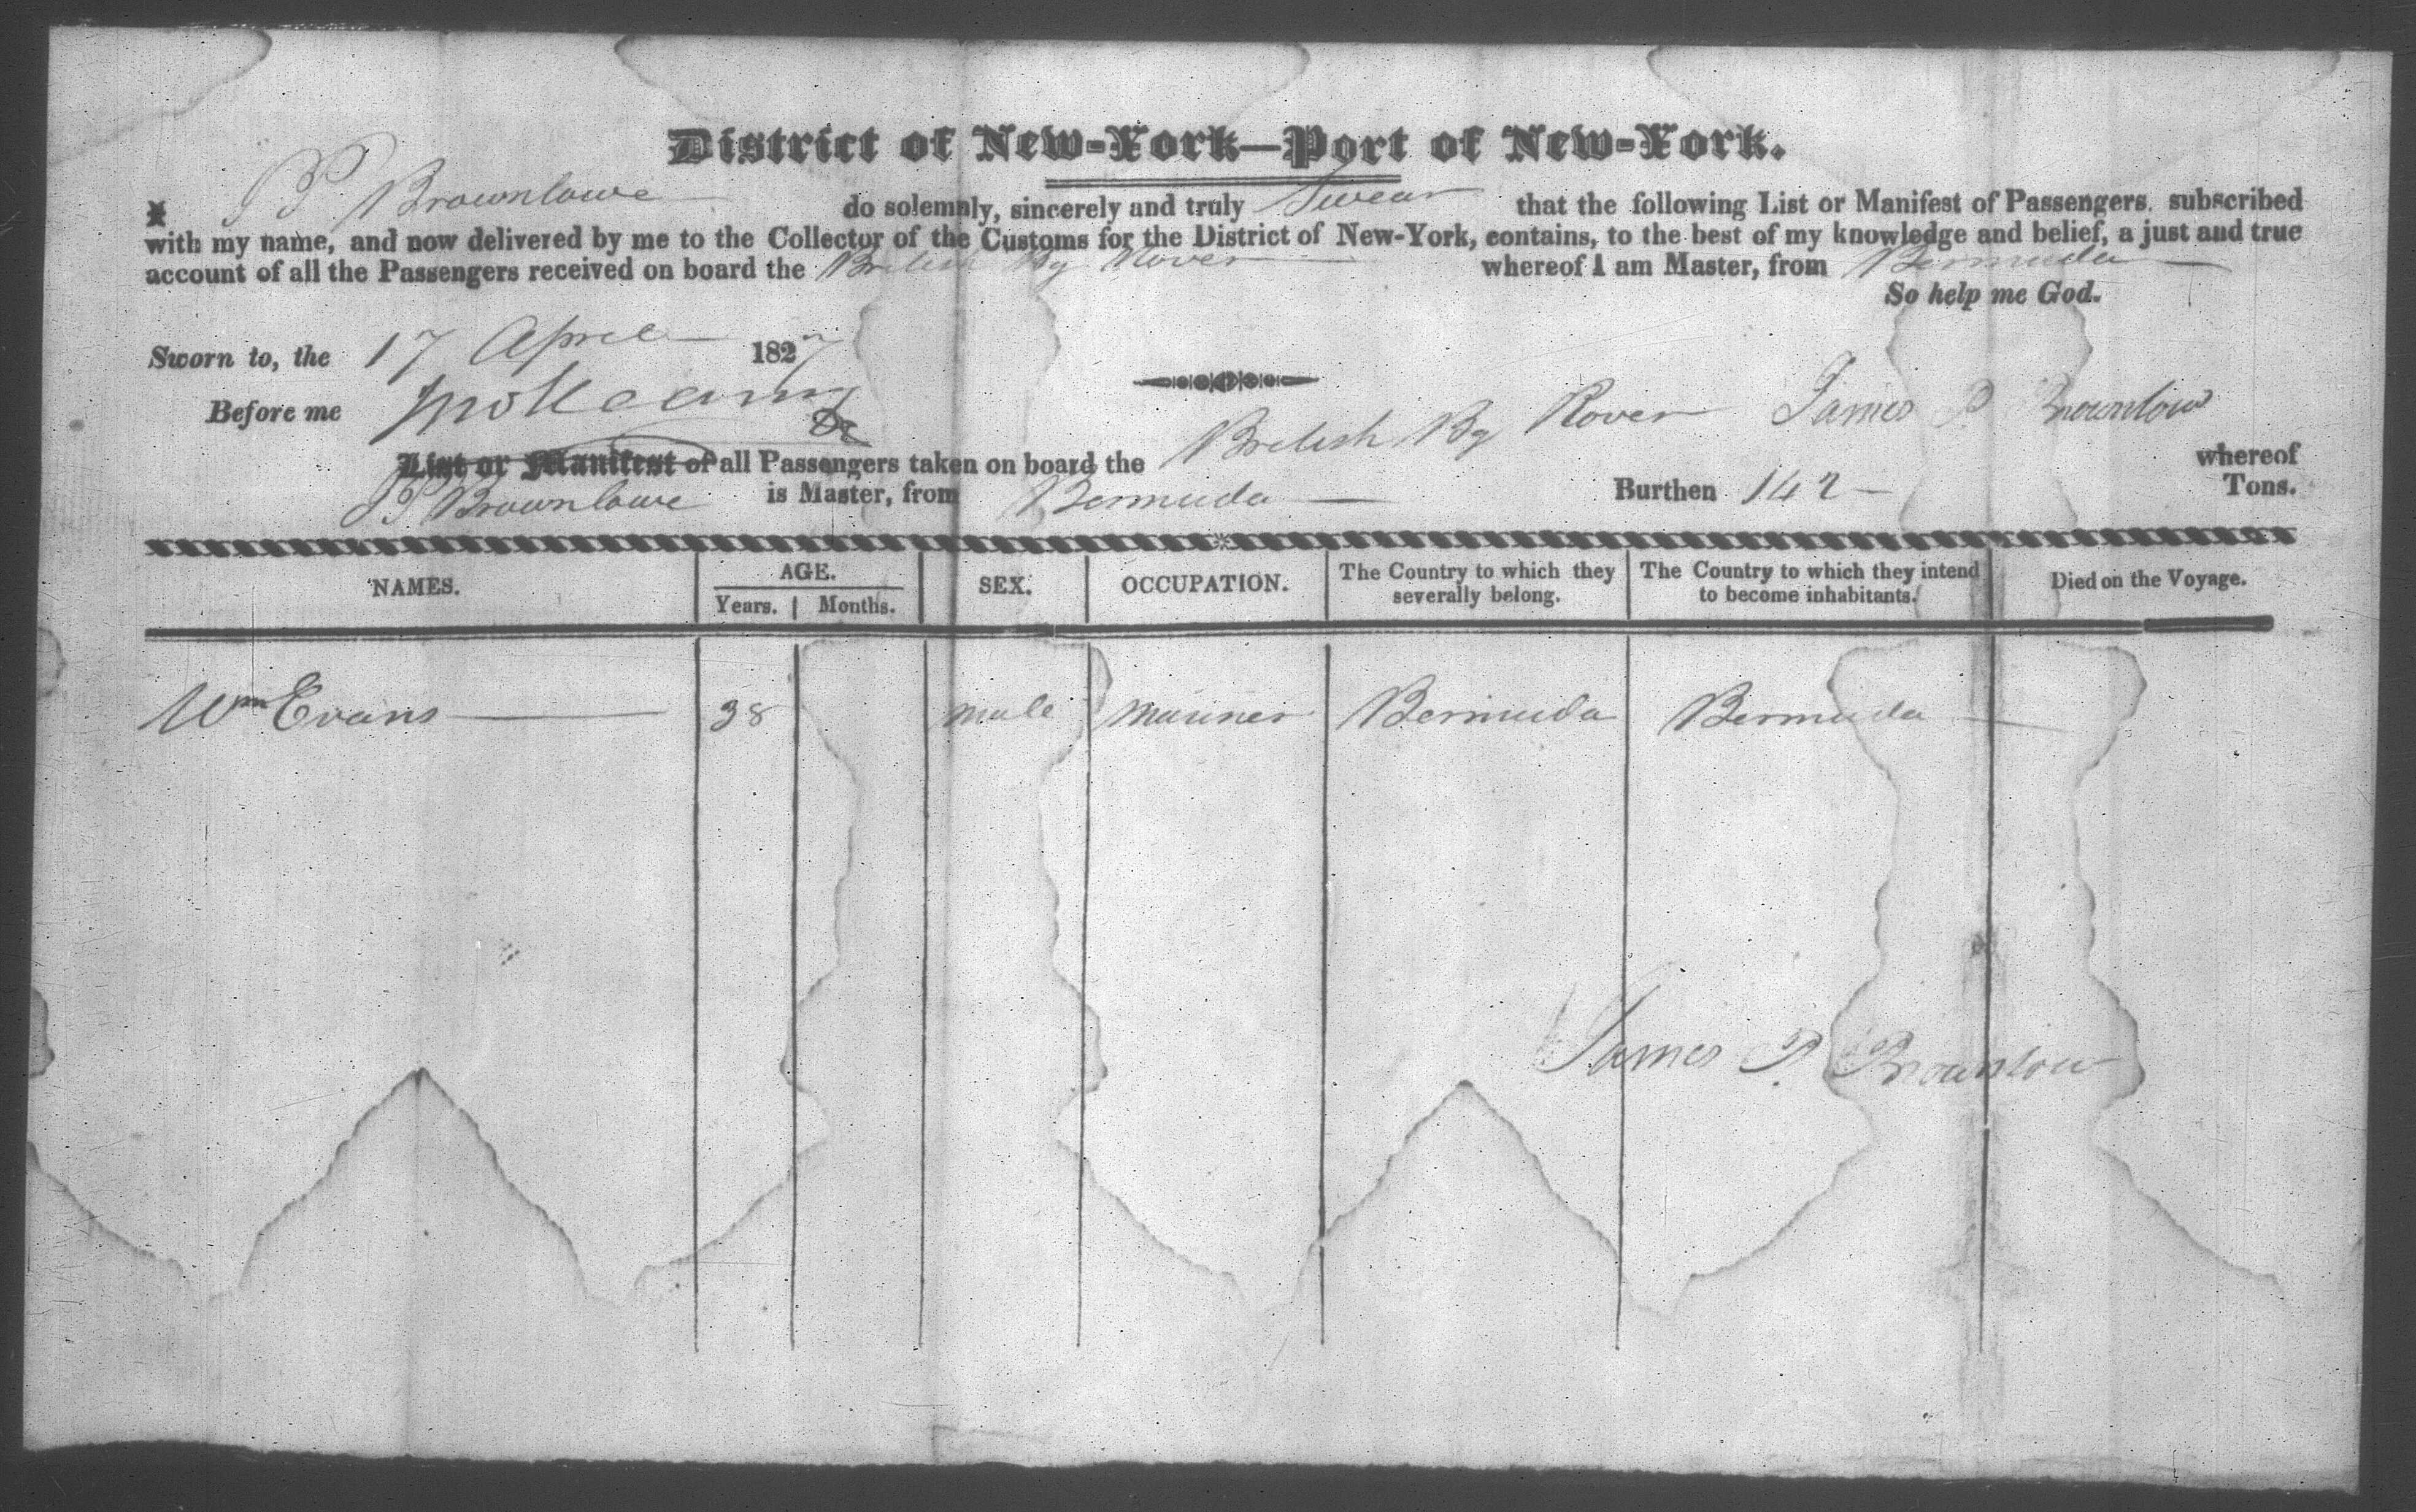 District of New-York—Port of New-York.
I J P Brownlowe do solemnly, sincerely and truly Swear that the following List or Manifest of Passengers, subscribed
with my name, and now delivered by me to the Collector of the Customs for the District of New-York, contains, to the best of my knowledge and belief, a just and true
account of all the Passengers received on board the British Bg Rover whereof I am Master, from Bermuda
So help me God.
Sworn to, the 17 April 1827
Before me
James P Brownlow
List or Manifest of all Passengers taken on board the British Bg Rover whereof
J P Brownlowe is Master, from Bermuda — Burthen 142 — Tons.
NAMES. AGE. SEX. OCCUPATION. The Country to which they severally belong. The Country to which they intend to become inhabitants. Died on the Voyage.
Years. Months.
Wm Evans 38 male mariner Bermuda Bermuda
James P Brownlow